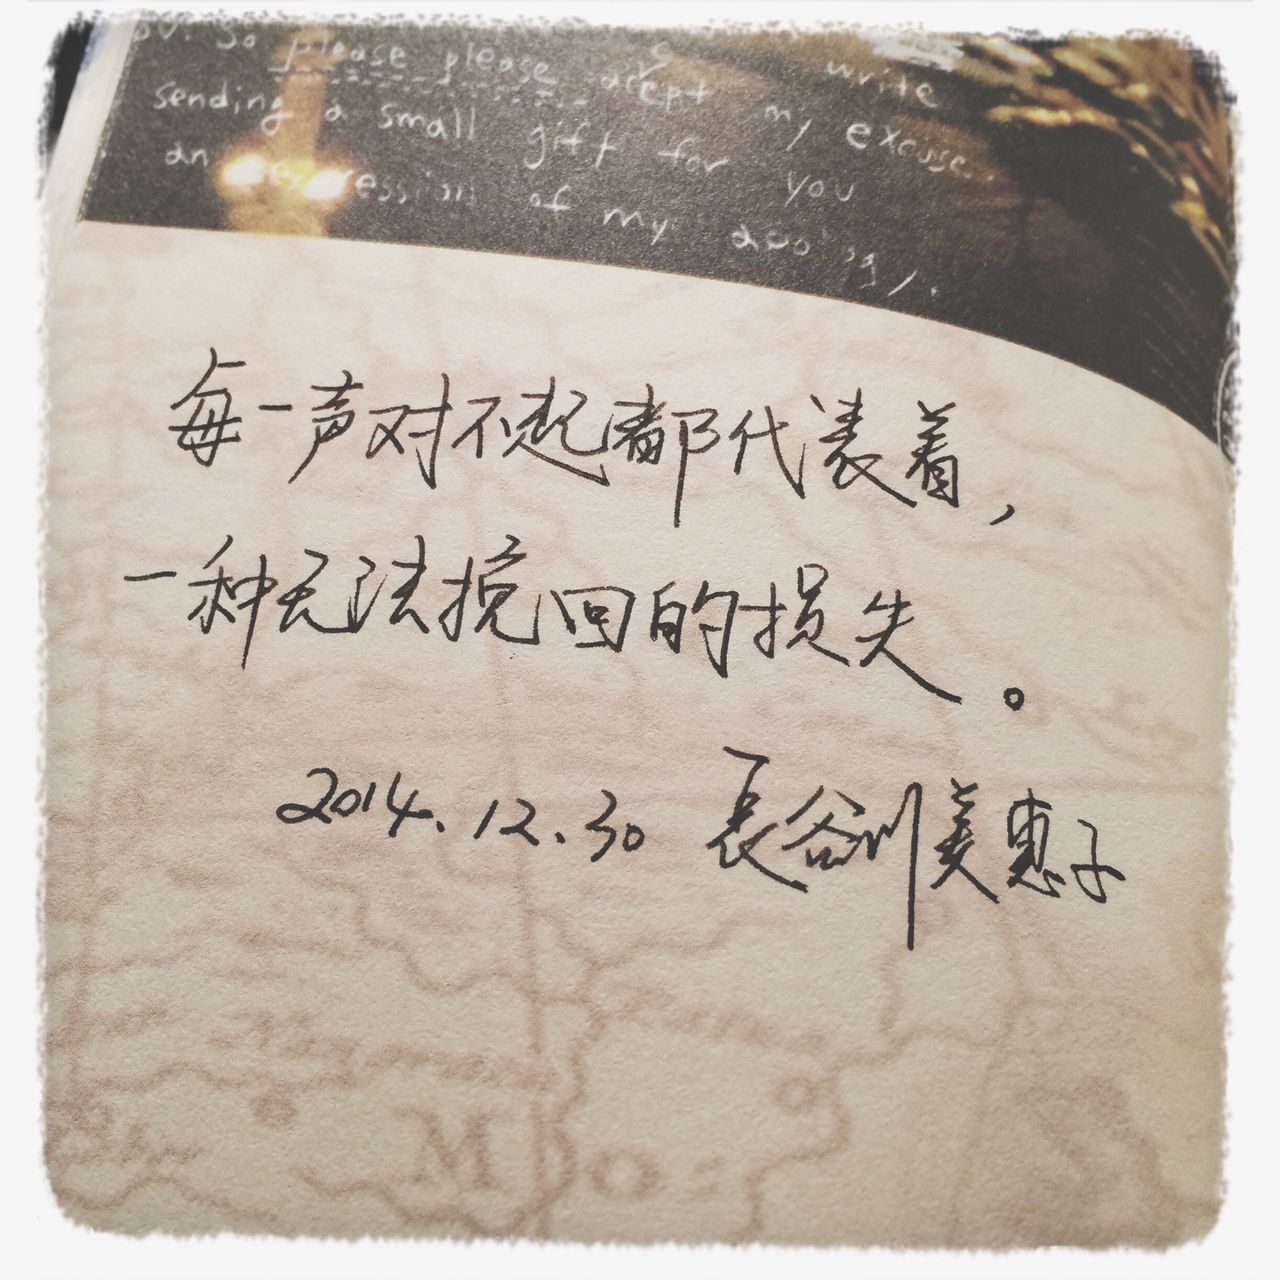 ov. So please please write
acept my excuse.
sending a small gift for you
an expression of my apology.
每一声对不起都代表着，
一种无法挽回的损失。
2014.12.30 長谷川美惠子
M